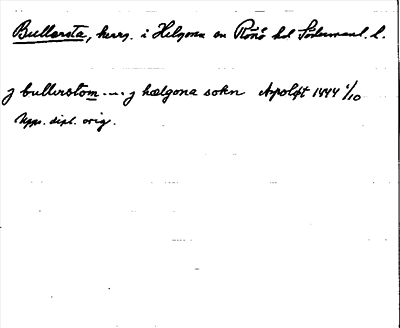 Bullersta, herrg. i Helgona sn Rönö hd Södermanl. l.
J bullerstom ... J hælgona sokn Nyköpt 1444 1/10
Upps. dipl. orig.